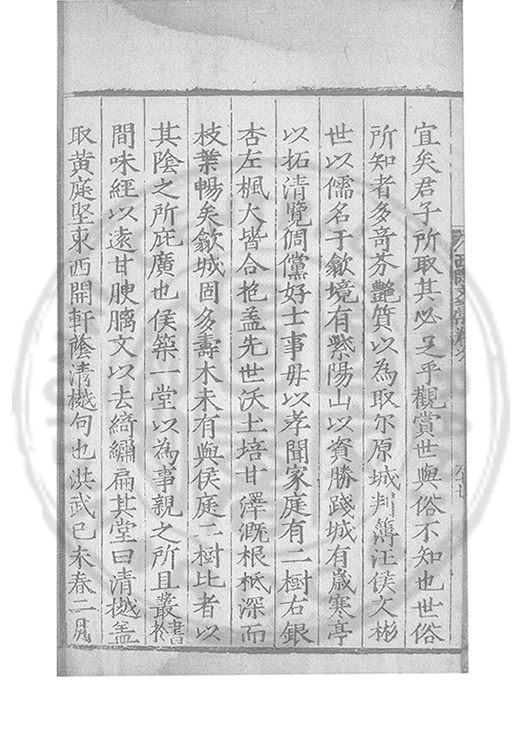 宜矣君子所取其必足乎觀賞世與俗不知也世俗
所知者多竒芬艷質以為取尔原城判簿汪侯文彬
世以儒名于歙境有紫陽山以資勝踐城有歲寒亭
以拓清覽倜儻好士事母以孝聞家庭有二樹右銀
杏左楓大皆合抱盖先世沃土培甘澤溉根柢深而
枝葉暢矣歙城固多壽木未有與侯庭二樹比者以
其陰之所庇廣也侯築一堂以為事親之所且叢書於
間味經以遠甘腴腐文以去綺繡扁其堂曰清樾盖
取黄庭堅東西開軒蔭清樾句也洪武己未春二月